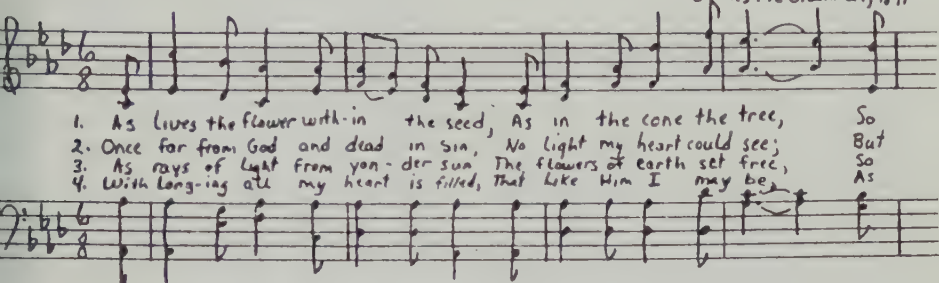 6
8
1. As lives the flower with-in the seed, As in the cone the tree, So
2. Once far from God and dead in sin, No light my heart could see; But
3. As rays of light from yon-der sun The flowers of earth set free, So
4. With long-ing all my heart is filled, That like Him I may be, As
6
8